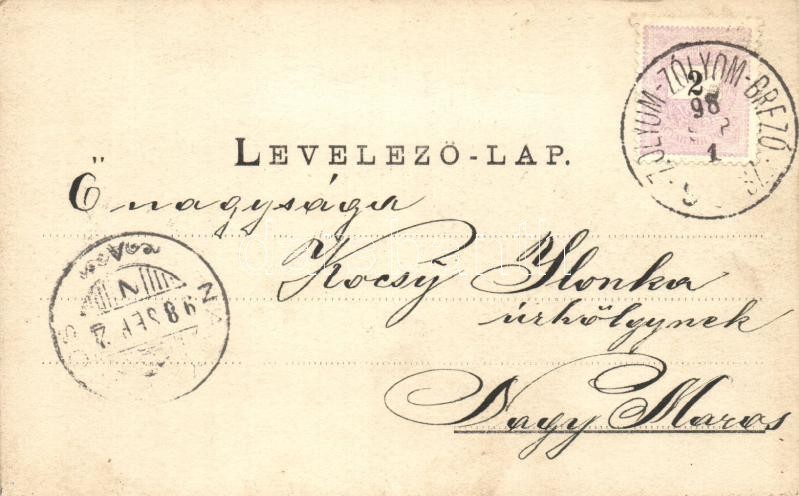 ZÓLYOM-ZÓLYOM-BREZÓ
2
98
1
9
LEVELEZŐ-LAP.
Őnagysága
Kocsÿ Ilonka
úrhölgynek
Nagy Maros
98 SEP 2